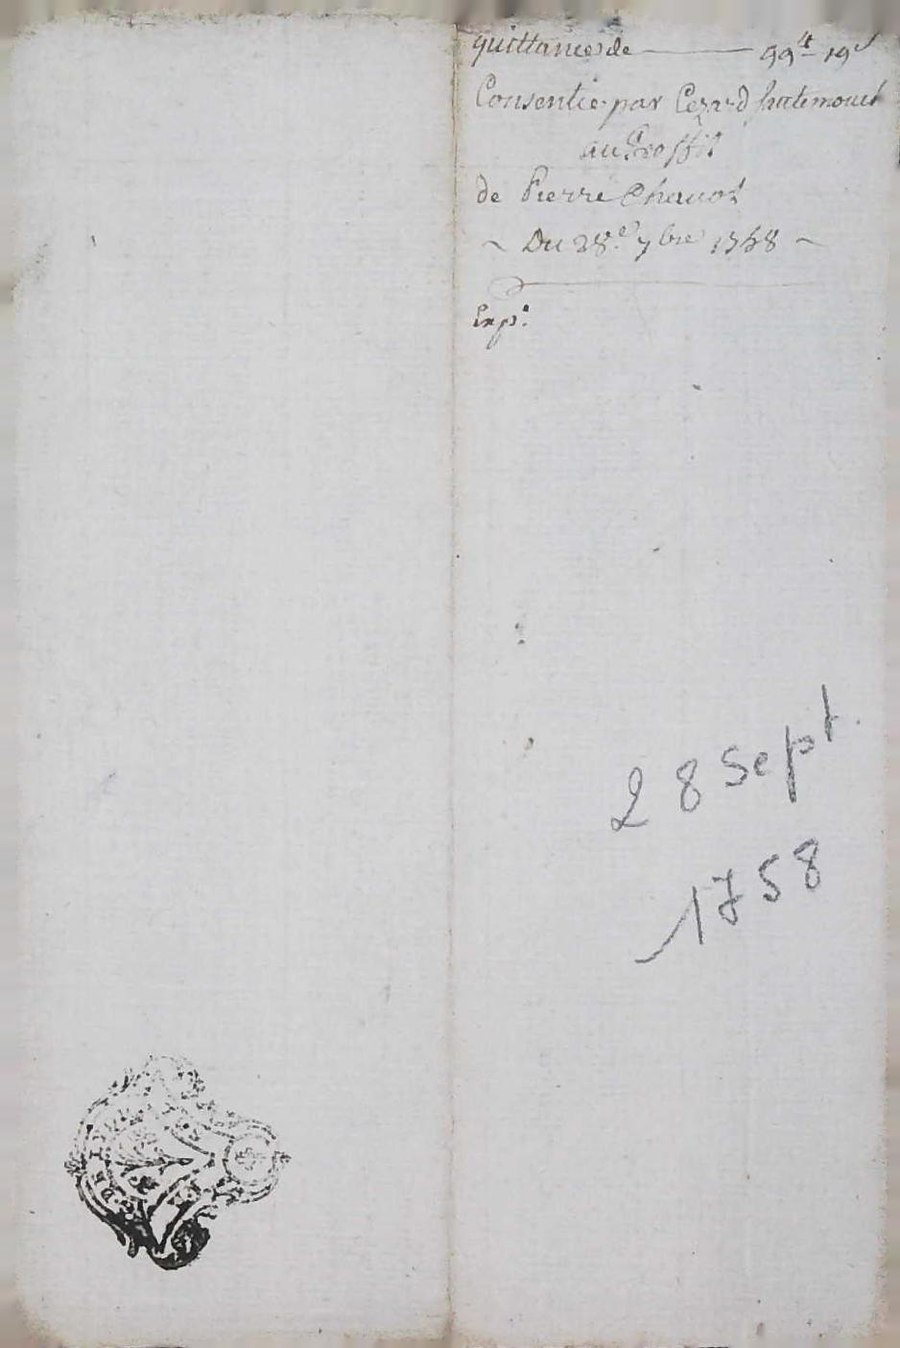 quittance de ——— 99lt 19s
Consentie par
au proffit
de Pierre Chavot
~ Du 28e 7bre 1758 ~
Expe
28 Sept.
1758